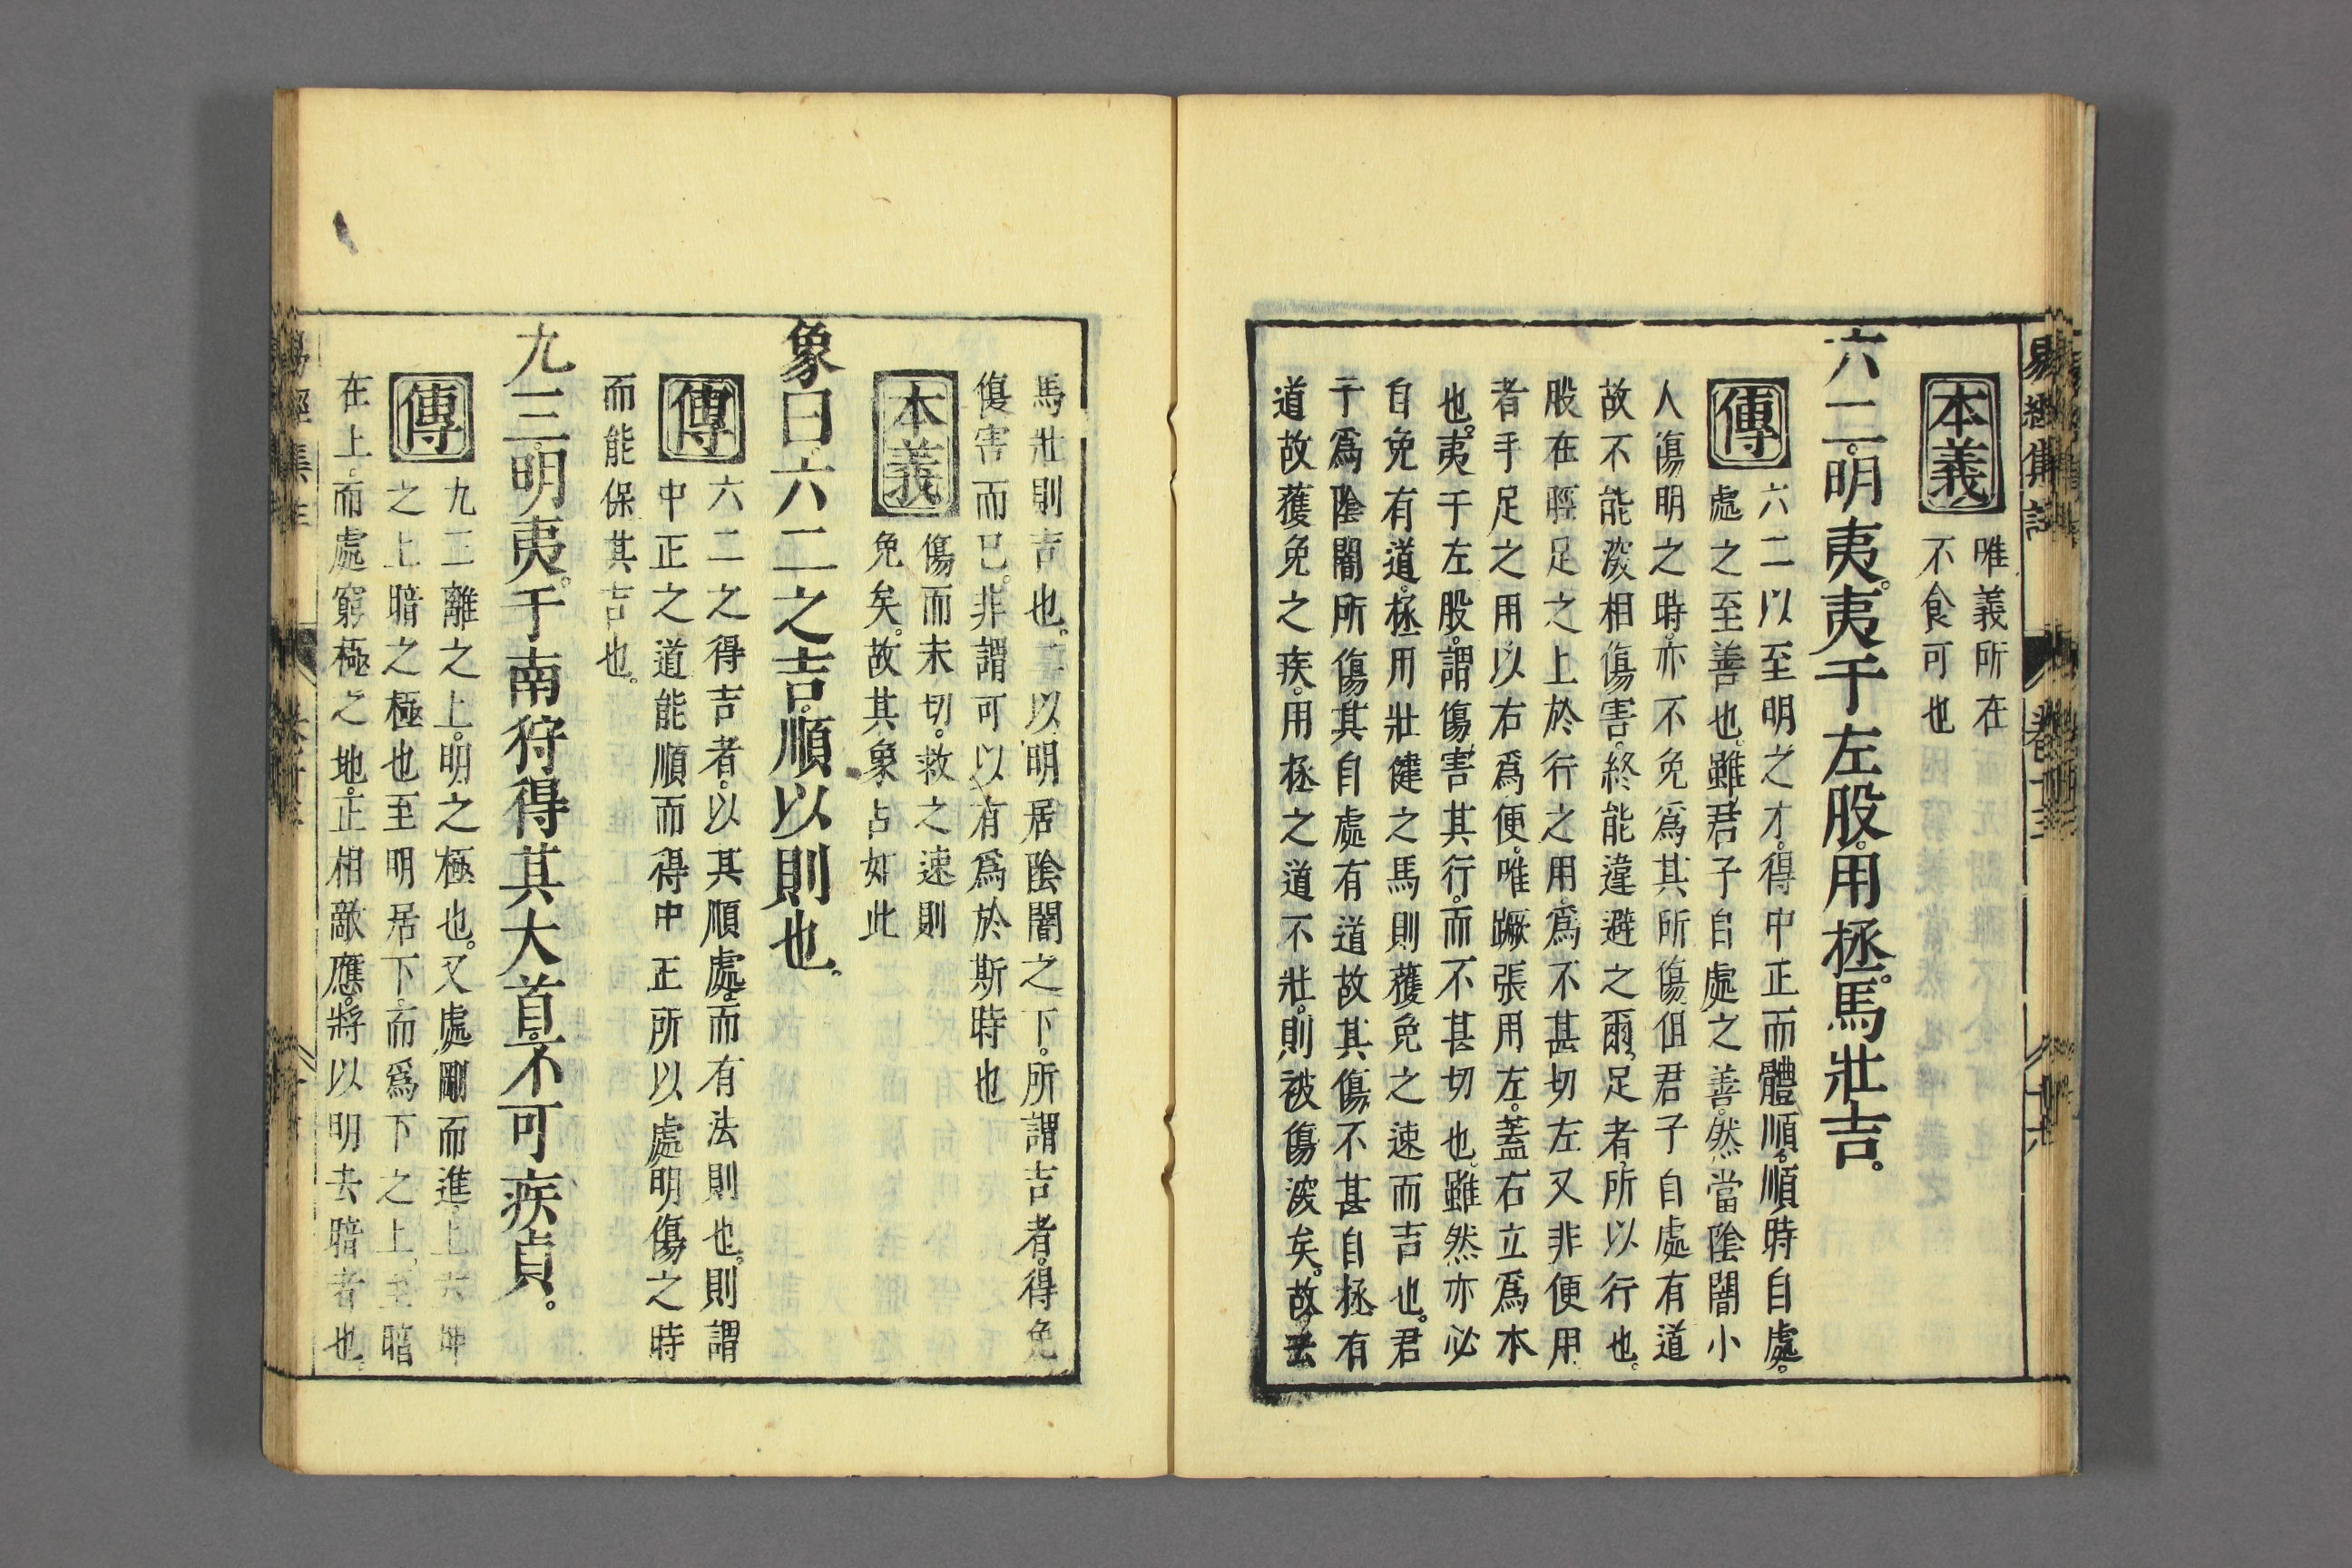 易經集註
卷十三
十六
本義
唯義所在
不食可也
六二。明夷。夷于左股。用拯。馬壯吉。
傳
六二以至明之才。得中正而體順。順時自處。
處之至善也。雖君子自處之善。然當陰闇小
人傷明之時。亦不免爲其所傷。但君子自處有道
故不能深相傷害。終能違避之爾。足者。所以行也。
股在脛足之上於行之用。爲不甚切左又非便用
者手足之用以右爲便。唯蹶張用左。蓋右立爲本
也。夷于左股。謂傷害其行。而不甚切也。雖然亦必
自免有道。拯用壯健之馬則獲免之速而吉也。君
子爲陰闇所傷其自處有道故其傷不甚自拯有
道故獲免之疾。用拯之道不壯。則被傷深矣。故云
馬壯則吉也。二以明居陰闇之下。所謂吉者。得免
傷害而已。非謂可以有爲於斯時也
本義
傷而未切。救之速則
免矣。故其象占如此
象曰。六二之吉。順以則也。
傳
六二之得吉者。以其順處。而有法則也。則謂
中正之道能順而得中正所以處明傷之時
而能保其吉也。
九三。明夷。于南狩得其大首。不可疾貞。
傳
九三離之上。明之極也。又處剛而進。上六坤
之上暗之極也至明居下。而爲下之上。至暗
在上。而處窮極之地。正相敵應。將以明去暗者也。
易經集註